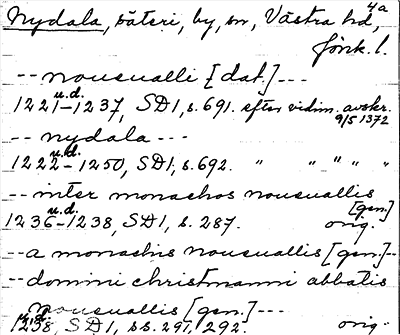 4a
Nydala, säteri, by, sn, Västra hd,
Jönk. l.
-- nouauualli [dat.] ---
u.d.
1221-1237, SD 1, s. 691. efter vidim. avskr.
9/5 1372
-- nydala ---
u.d.
1222-1250, SD 1, s. 692. " " " " "
-- inter monachos nouauuallis
[gen.]
u.d.
1236-1238, SD 1, s. 287. orig.
-- a monachis nouauuallis [gen.]--
-- domini christmanni abbatis
nouauuallis [gen.]---
u.d.
1238, SD 1, s.s. 291, 292. orig.